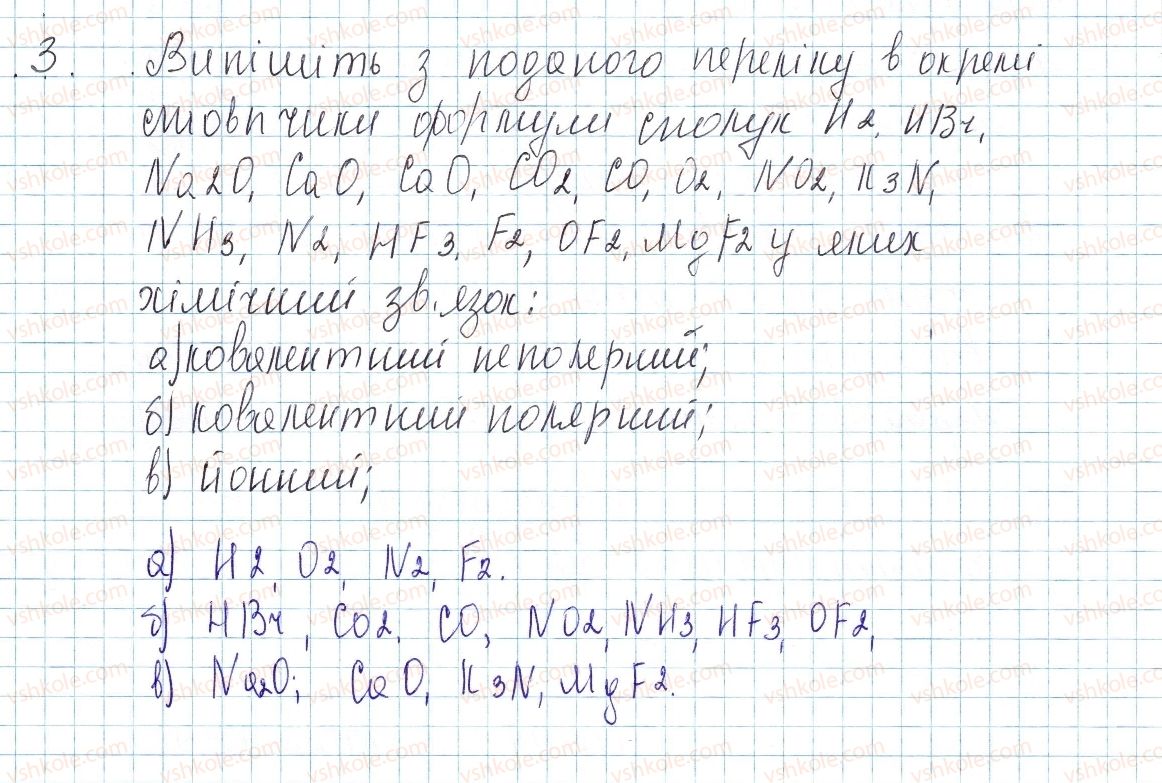 3. Випішіть з поданого переліку в окремі
стовпчики формули сполук H2, HBr,
Na2O, CaO, CaO, CO2, CO, O2, NO2, K3N,
NH3, N2, HF3, F2, OF2, MgF2 у яких
хімічний зв'язок:
а) ковалентний неполерний;
б) ковалентний полярний;
в) йонний;
а) H2, O2, N2, F2.
б) HBr, Co2, CO, NO2, NH3, HF3, OF2,
в) Na2O; CaO, K3N, MgF2.